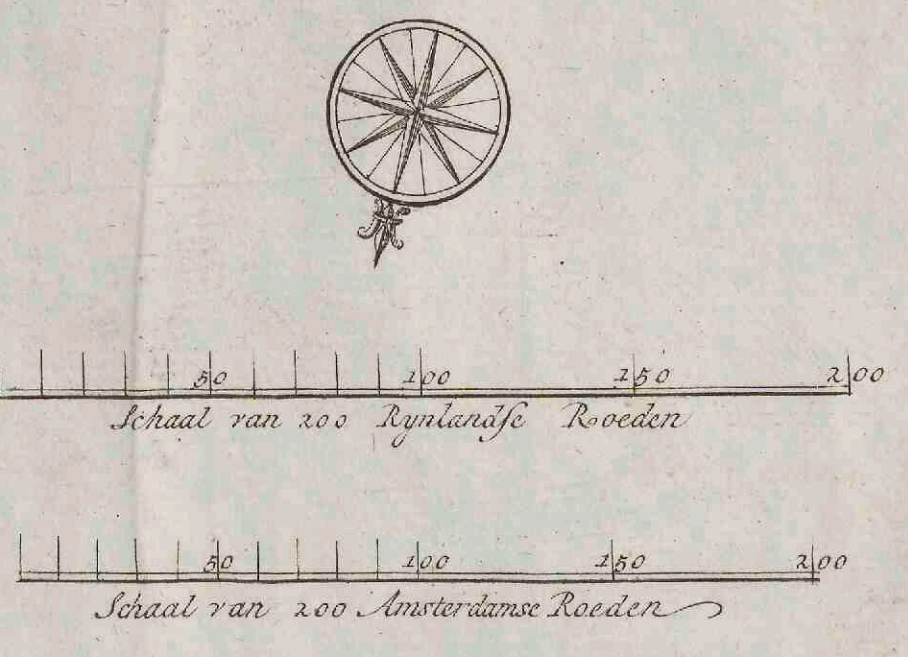 50 100 150 200
Schaal van 200 Rynlandse Roeden
50 100 150 200
Schaal van 200 Amsterdamse Roeden